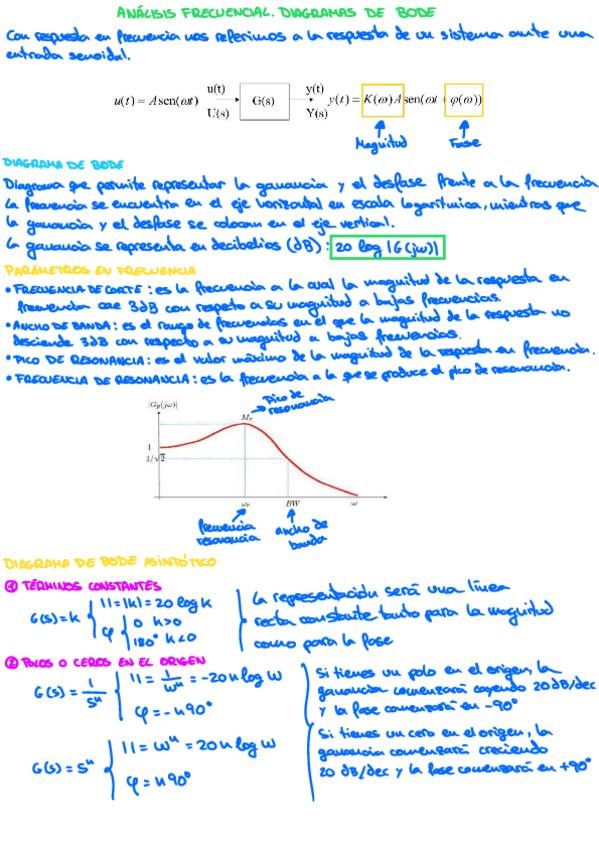 ANÁLISIS FRECUENCIAL. DIAGRAMAS DE BODE
Con respuesta en frecuencia nos referimos a la respuesta de un sistema ante una
entrada senoidal.
u(t) = A sen(ωt)
u(t)
U(s)
G(s)
y(t)
Y(s)
y(t) = K(ω)A sen(ωt + φ(ω))
Magnitud
Fase
DIAGRAMA DE BODE
Diagrama que permite representar la ganancia y el desfase frente a la frecuencia
La frecuencia se encuentra en el eje horizontal en escala logarítmica, mientras que
la ganancia y el desfase se colocan en el eje vertical.
La ganancia se representa en decibelios (dB): 20 log |G(jω)|
PARÁMETROS EN FRECUENCIA
• FRECUENCIA DE CORTE: es la frecuencia a la cual la magnitud de la respuesta en
frecuencia cae 3dB con respecto a su magnitud a bajas frecuencias.
• ANCHO DE BANDA: es el rango de frecuencias en el que la magnitud de la respuesta no
desciende 3dB con respecto a su magnitud a bajas frecuencias.
• PICO DE RESONANCIA: es el valor máximo de la magnitud de la respuesta en frecuencia.
• FRECUENCIA DE RESONANCIA: es la frecuencia a la que se produce el pico de resonancia.
|Gp(jω)|
Mr
Pico de
resonancia
1
1/√2
ωr
BW
ω
frecuencia
resonancia
ancho de
banda
DIAGRAMA DE BODE ASINTÓTICO
① TÉRMINOS CONSTANTES
G(s)=k { | |=|k|=20 log k
φ { 0 k>0
180° k<0
La representación será una línea
recta constante tanto para la magnitud
como para la fase
② POLOS O CEROS EN EL ORIGEN
G(s)=1/sⁿ { | |=1/ωⁿ=-20n log ω
φ=-n90°
Si tienes un polo en el origen, la
ganancia comenzará cayendo 20dB/dec
y la fase comenzará en -90°
G(s)=sⁿ { | |=ωⁿ=20n log ω
φ=n90°
Si tienes un cero en el origen, la
ganancia comenzará creciendo
20 dB/dec y la fase comenzará en +90°